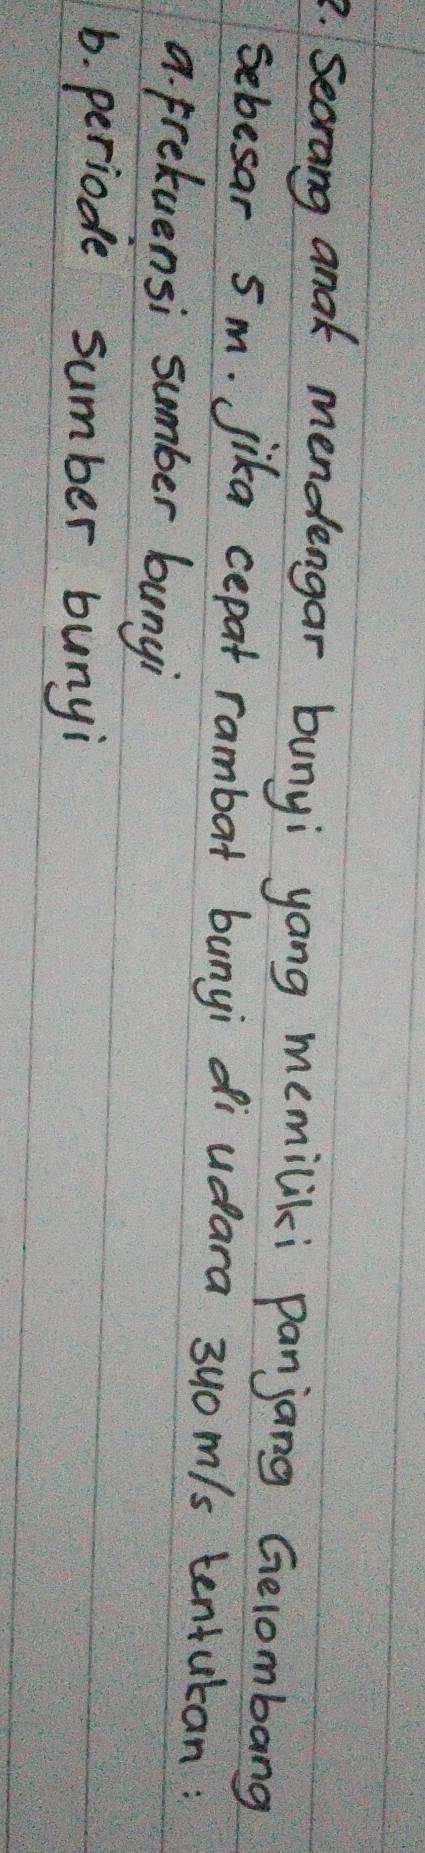 2. Seorang anak mendengar bunyi yang memiliki panjang Gelombang
sebesar 5 m. Jika cepat rambat bunyi di udara 340 m/s tentukan :
a. Frekuensi sumber bunyi
b. periode sumber bunyi